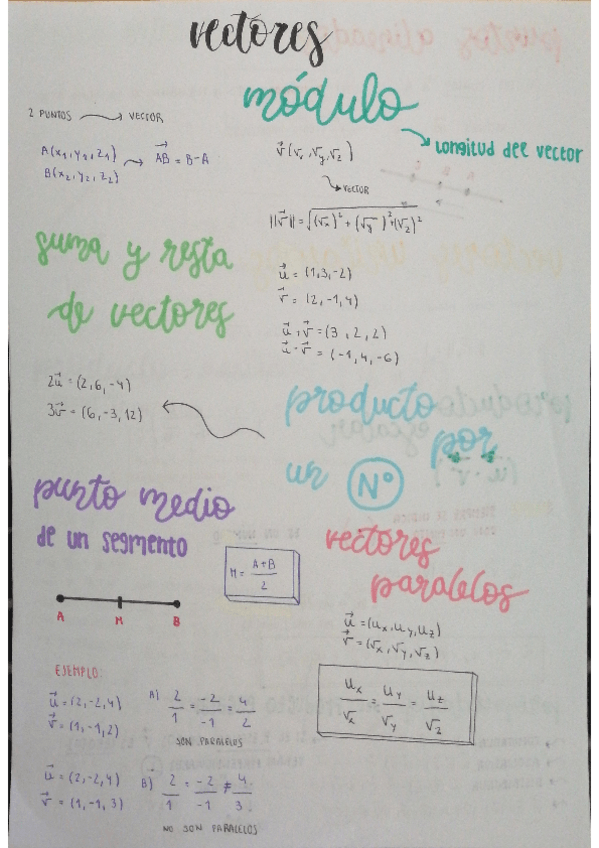 vectores
módulo
2 PUNTOS → VECTOR
A(x₁,y₁,z₁) → AB⃗ = B-A
B(x₂,y₂,z₂)
→ Longitud del vector
v⃗ (vx, vy, vz)
→ VECTOR
||v⃗|| = √(vx)² + (vy)² + (vz)²
suma y resta
de vectores
u⃗ = (1,3,-2)
v⃗ = (2,-1,4)
u⃗+v⃗ = (3,2,2)
u⃗-v⃗ = (-1,4,-6)
2u⃗ = (2,6,-4)
3v⃗ = (6,-3,12)
producto
por
un Nº
punto medio
de un segmento
M = A+B / 2
A M B
vectores
paralelos
u⃗ = (ux, uy, uz)
v⃗ = (vx, vy, vz)
ux/vx = uy/vy = uz/vz
EJEMPLO:
u⃗ = (2,-2,4)
v⃗ = (1,-1,2)
A) 2/1 = -2/-1 = 4/2
SON PARALELOS
u⃗ = (2,-2,4)
v⃗ = (1,-1,3)
B) 2/1 = -2/-1 ≠ 4/3
NO SON PARALELOS